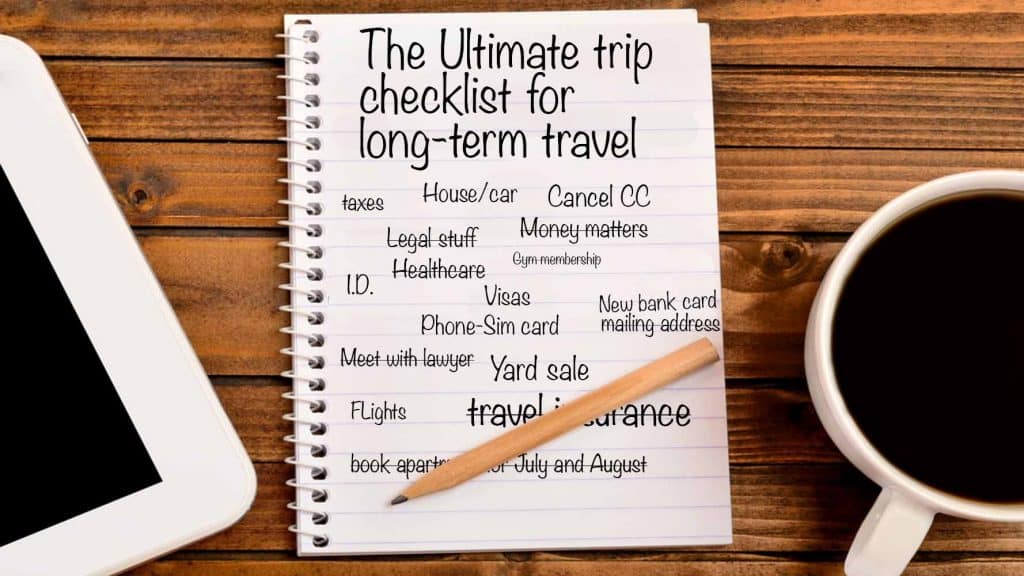 The Ultimate trip
checklist for
long-term travel
taxes House/car Cancel CC
Legal stuff Money matters
Healthcare Gym membership
I.D.
Visas New bank card
Phone-Sim card mailing address
Meet with lawyer Yard sale
FLights travel insurance
book July and August